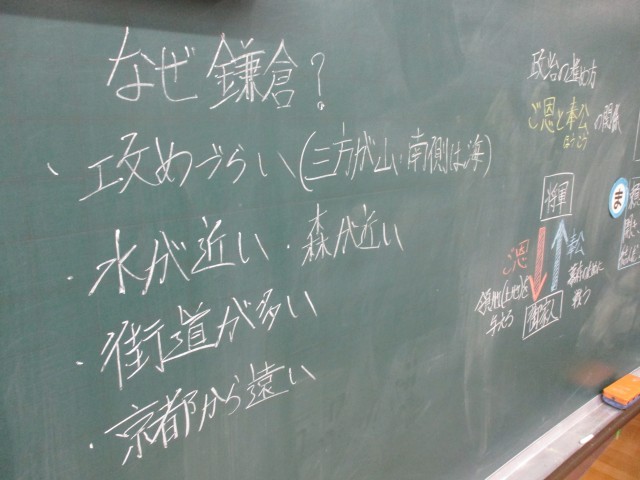 なぜ鎌倉?
・攻めづらい(三方が山・南側は海)
・水が近い・森が近い
・街道が多い
・京都から遠い
政治の進め方
ご恩と奉公の関係
ほうこう
将軍
ご恩
奉公
領地(土地)を
与える
幕府のために
戦う
御家人
ま